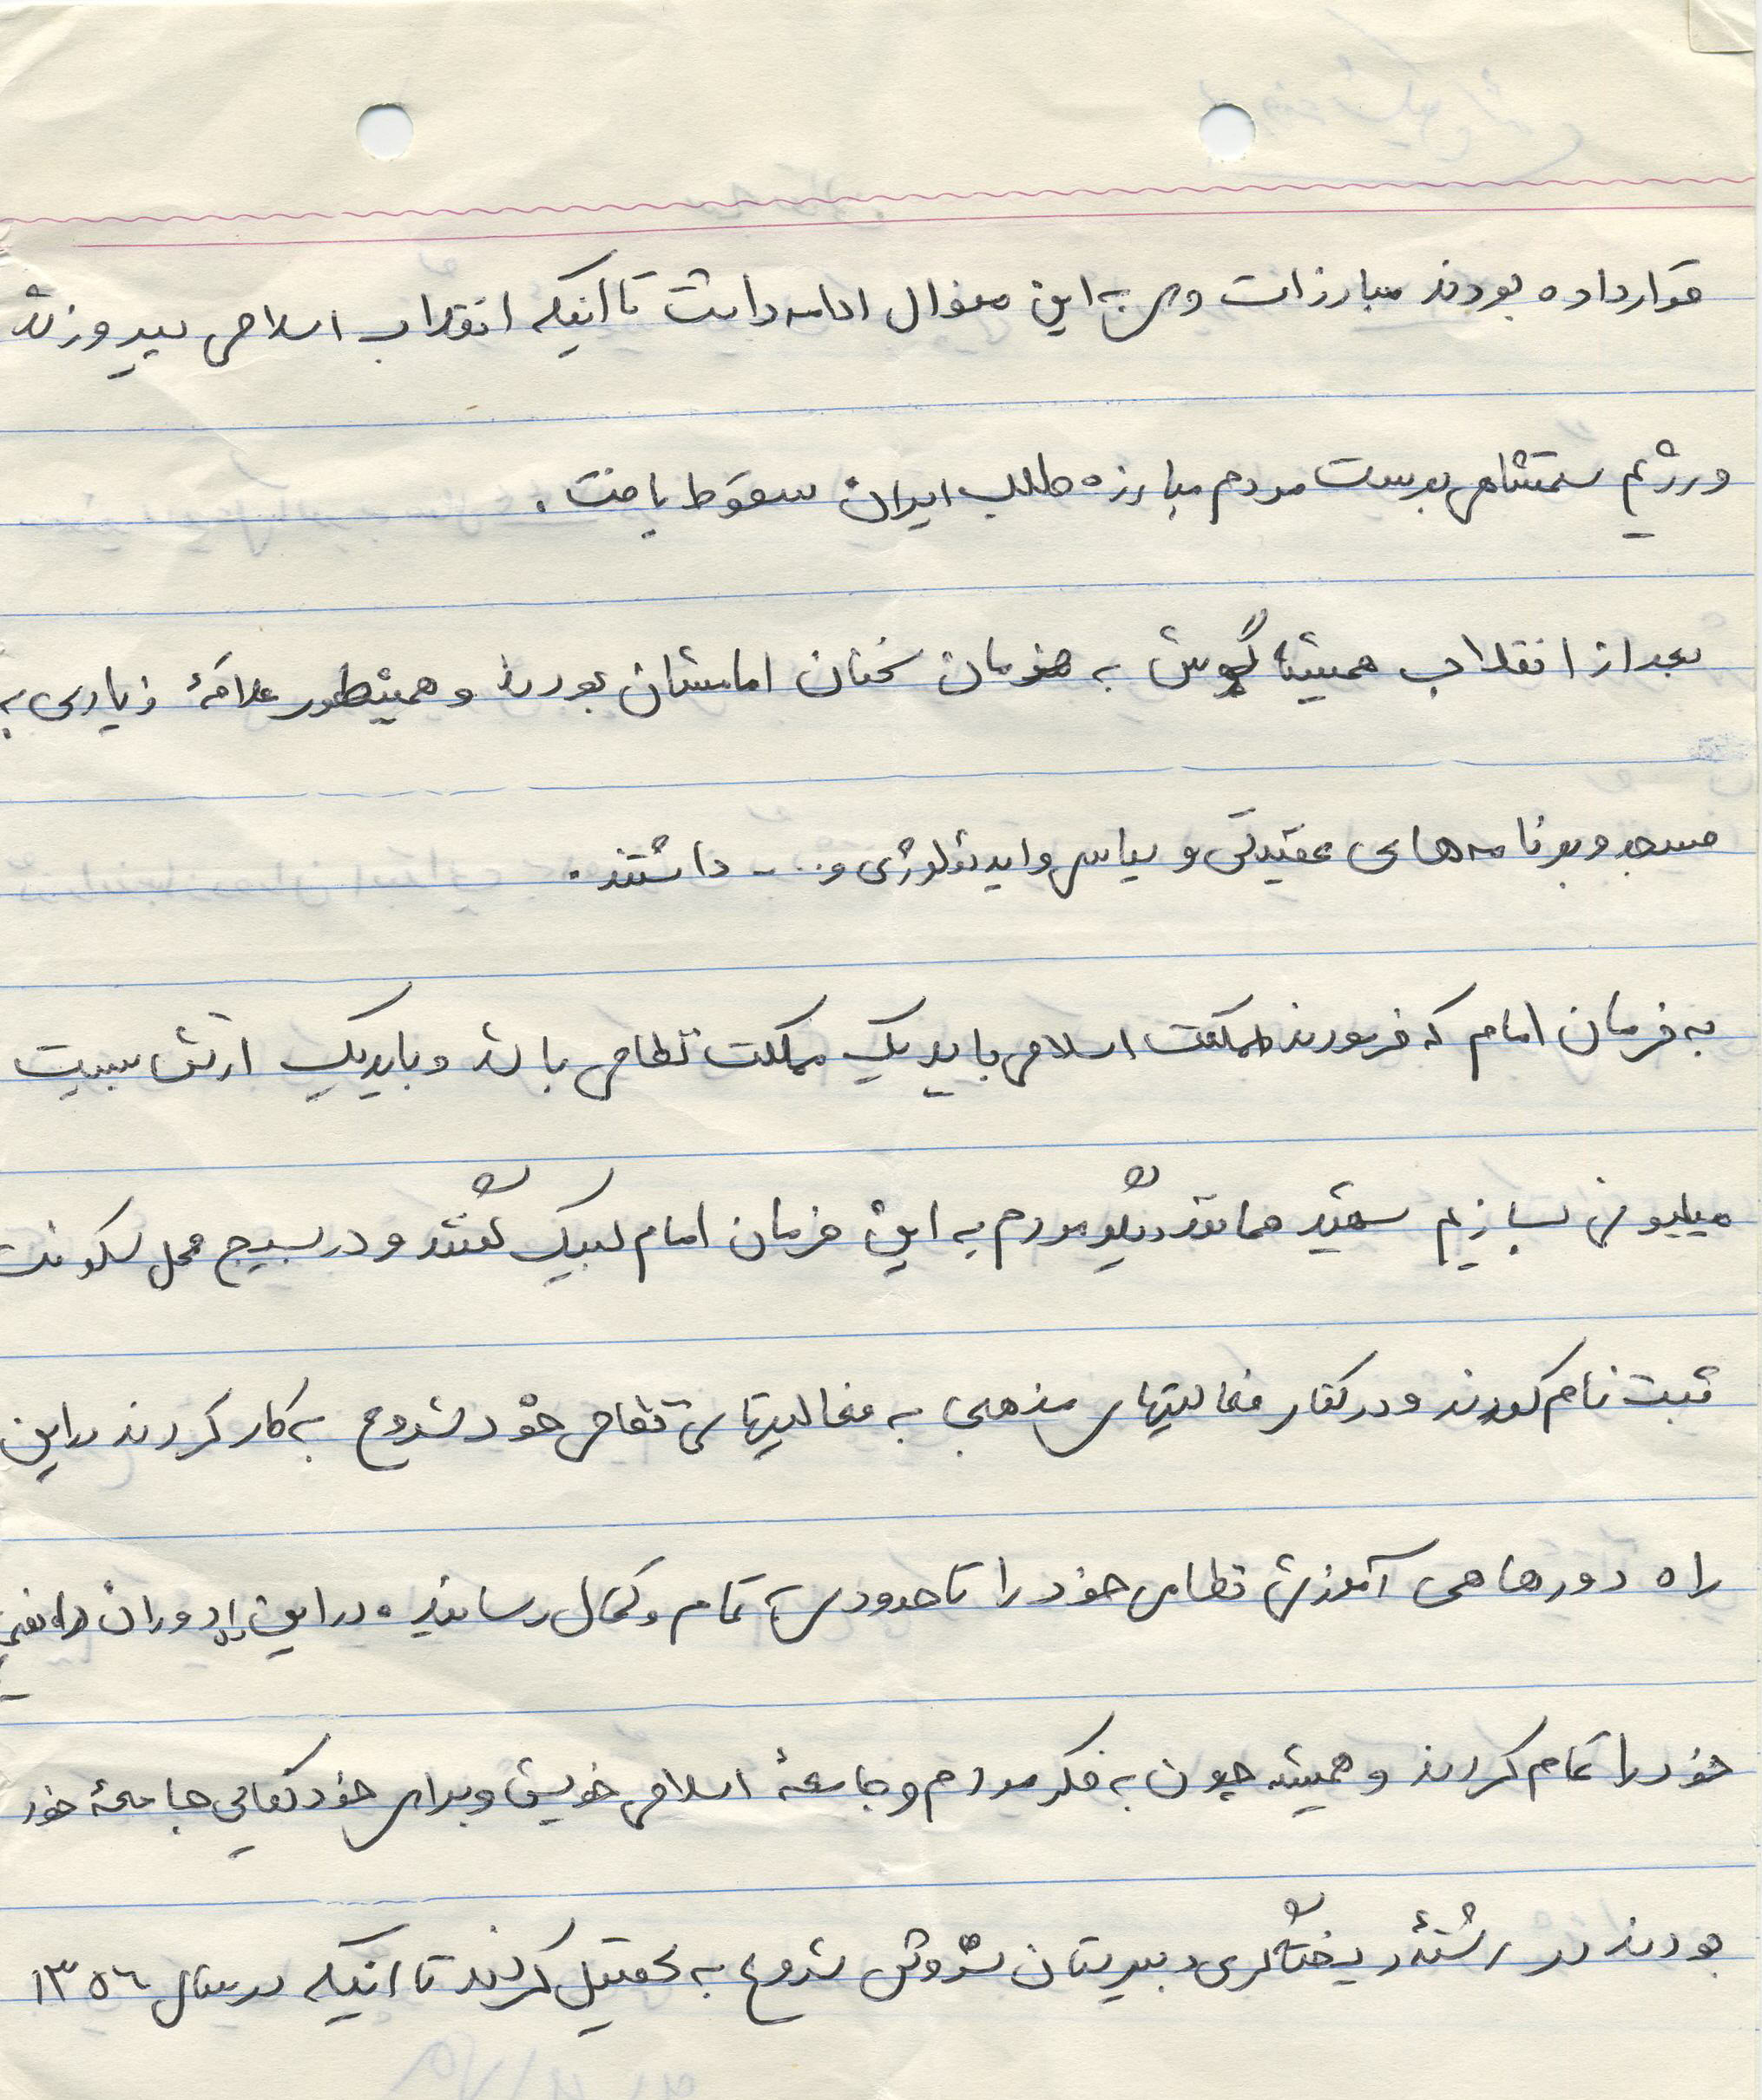 قرار داده بودند مبارزات وی به این منوال ادامه داشت تا اینکه انقلاب اسلامی پیروز شد
و رژیم ستمشاهی بدست مردم مبارزه طلب ایران سقوط یافت .
بعد از انقلاب همیشه گوش به فرمان سخنان امامشان بودند و همینطور علاقهٔ زیادی به
مسجد و برنامه‌های عقیدتی و سیاسی و ایدئولوژی و ... داشتند .
به فرمان امام که فرمودند مملکت اسلامی باید یک مملکت نظامی باشد و باید یک ارتش بیست
میلیونی بسازیم شهید همانند دیگر مردم به این فرمان امام لبیک گفتند و در بسیج محل سکونت
ثبت نام کردند و در کنار فعالیتهای مذهبی به فعالیتهای نظامی خود شروع به کار کردند در این
راه دورهاهی آموزش نظامی خود را تا حدودی به تمام و کمال رساندند . در این دوران
خود را تمام کردند و همیشه چون به فکر مردم و جامعهٔ اسلامی خویش و برای خودکفایی جامعهٔ خود
بودند در رشتهٔ ریخته‌گری دبیرستان شروع به تحصیل کردند تا اینکه در سال ۱۳۵۶